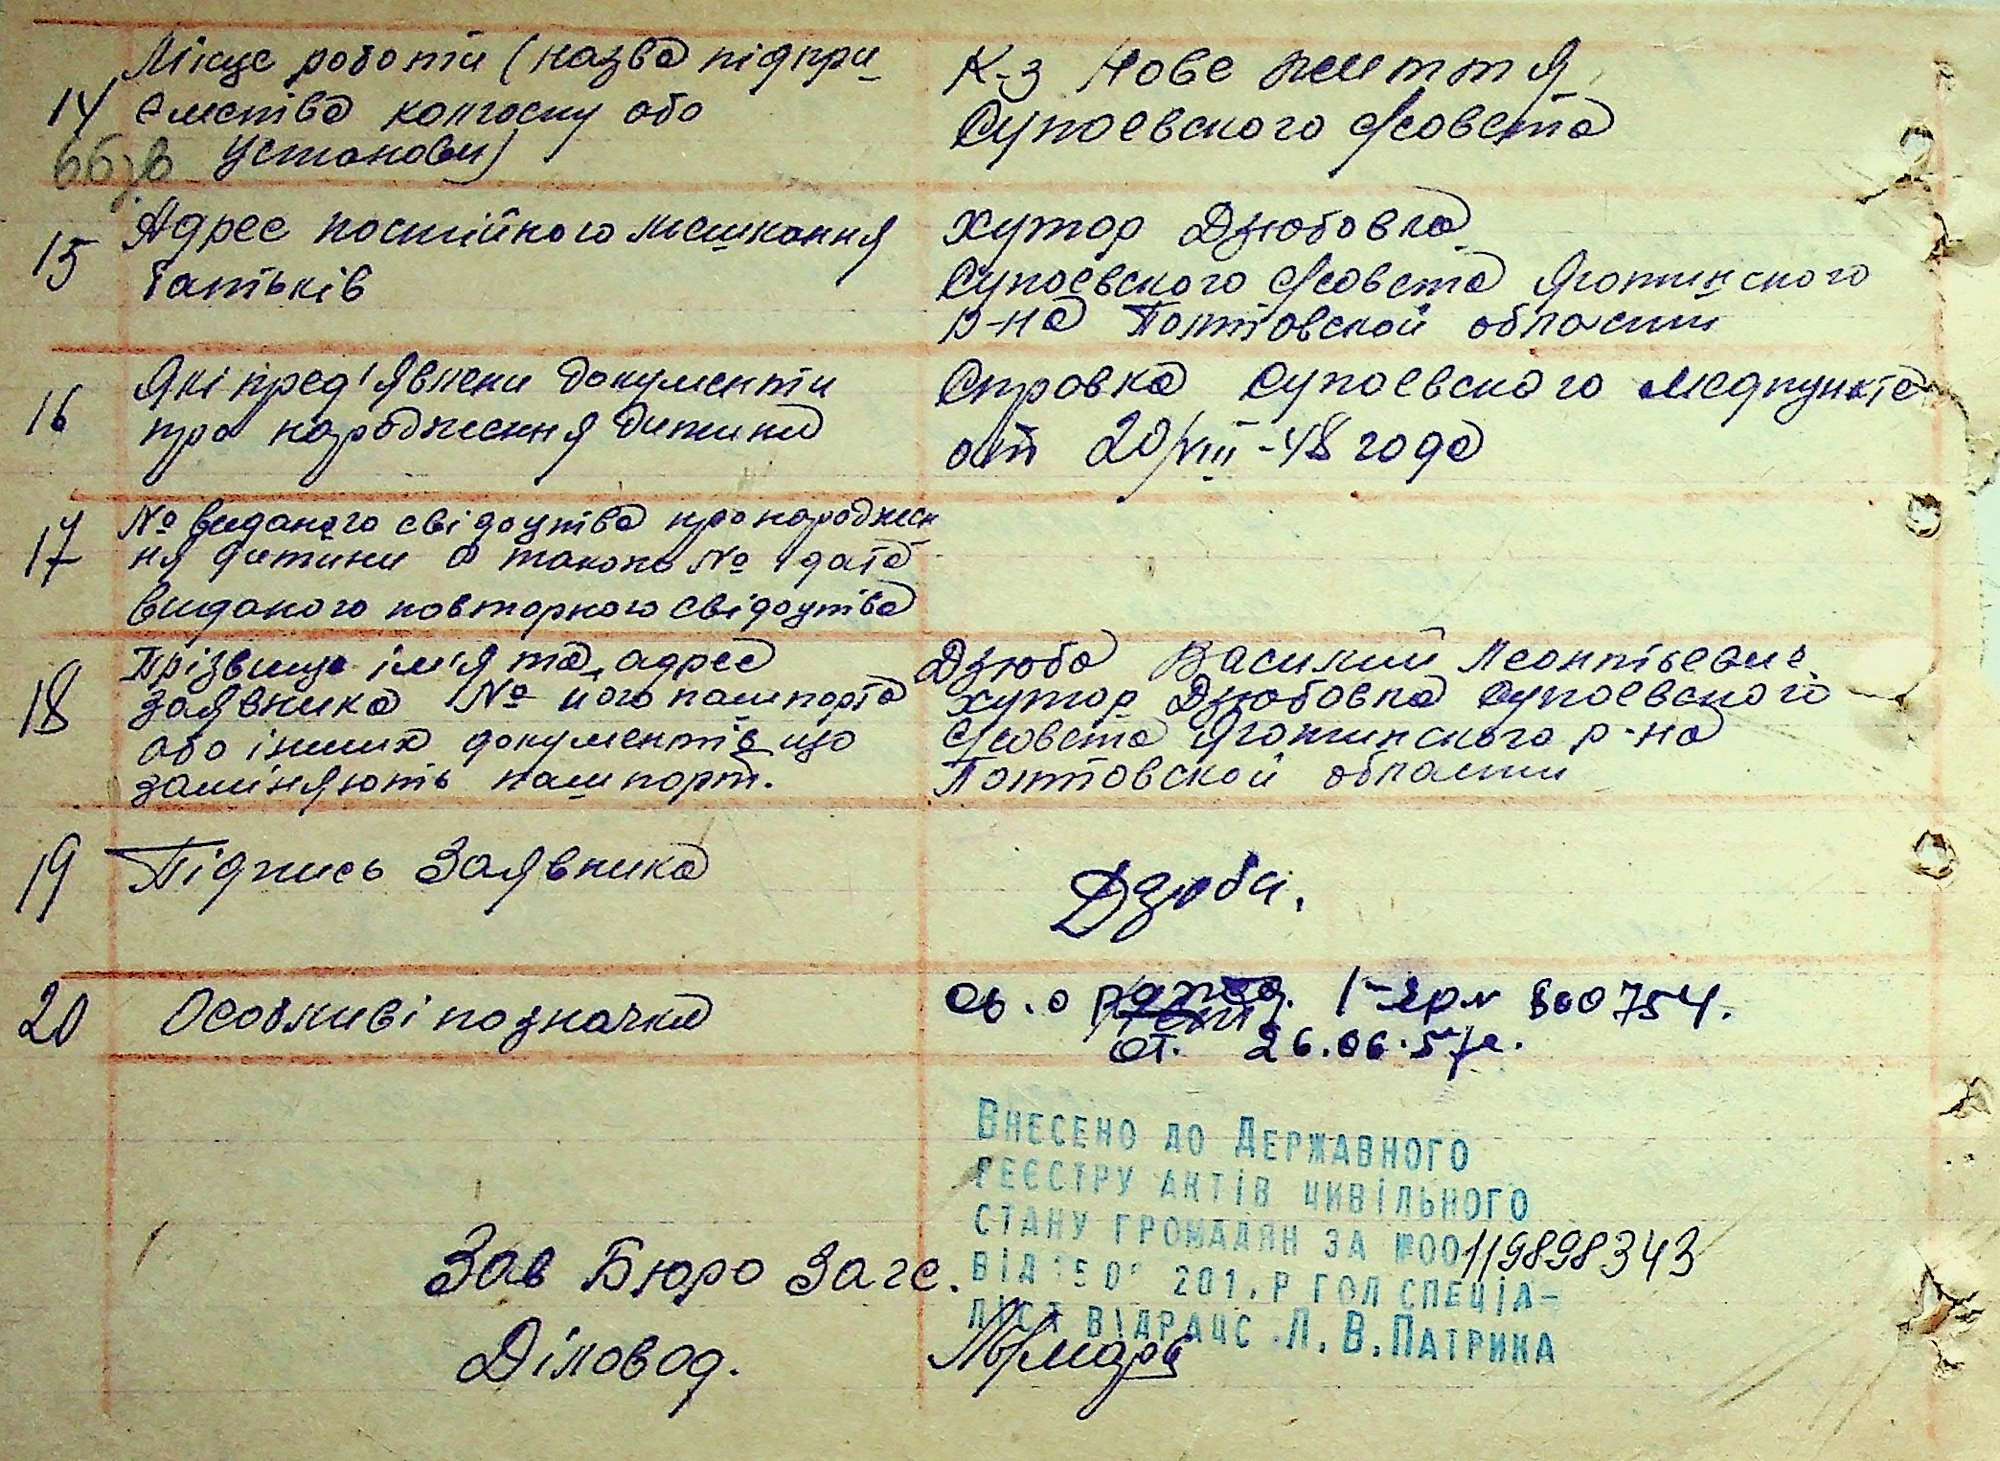 Місце роботи (назва підпри-
14 ємства колгоспу або
установи)
К-з Нове життя
Супоевского с/совета
15 Адрес постійного мешкання
батьків
хутор Дзюбовка
Супоевского с/совета Яготинского
р-на Полтовской области
16 Які пред'явлени документи
про народження дитини
Справка Супоевского медпункта
от 20/VIII-48 года
17 № виданого свідоцтва про народжен
ня дитини а також № дата
виданого повторного свідоцтва
18 Прізвище ім'я та адрес
заявника № його пашпорта
або інших документів що
заміняють пашпорт.
Дзюба Василий Леонтьевич
хутор Дзюбовка Супоевского
с/совета Яготинского р-на
Полтовской области
19 Підпись Заявника
Дзюба.
20 Особливі позначки
Св. о 860754.
от. 26.06.57г.
Внесено до Державного
реєстру актів цивільного
стану громадян за №00119898343
від 201 р гол специа-
ліст відрацс Л.В.Патрика
Зав Бюро Загс.
Діловод.